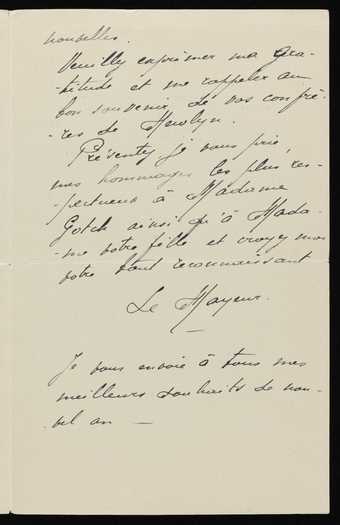 nouvelles.
Veuillez exprimer ma gra-
-titude et me rappeler au
bon souvenir de vos confrè-
-res de Newlyn.
Présentez je vous prie,
mes hommages les plus res-
-pectueux à Madame
Gotch ainsi qu'à Mada-
-me votre fille et croyez moi
votre tout reconnaissant
Le Mayeur.
Je vous envoie à tous mes
meilleurs souhaits de nou-
-vel an —